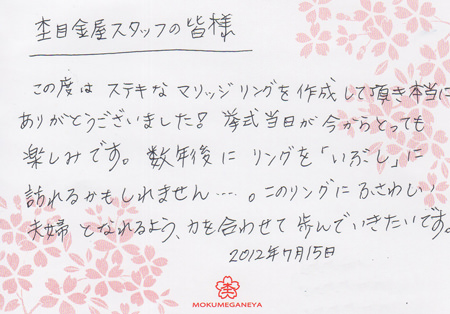 杢目金屋スタッフの皆様
この度は ステキな マリッジリングを作成して頂き本当に
ありがとうございました! 挙式当日が今からとっても
楽しみです。数年後に リングを「いぶし」に
訪れるかもしれません…。このリングに ふさわしい
夫婦 となれるよう、力を合わせて 歩んでいきたいです。
2012年7月15日
MOKUMEGANEYA